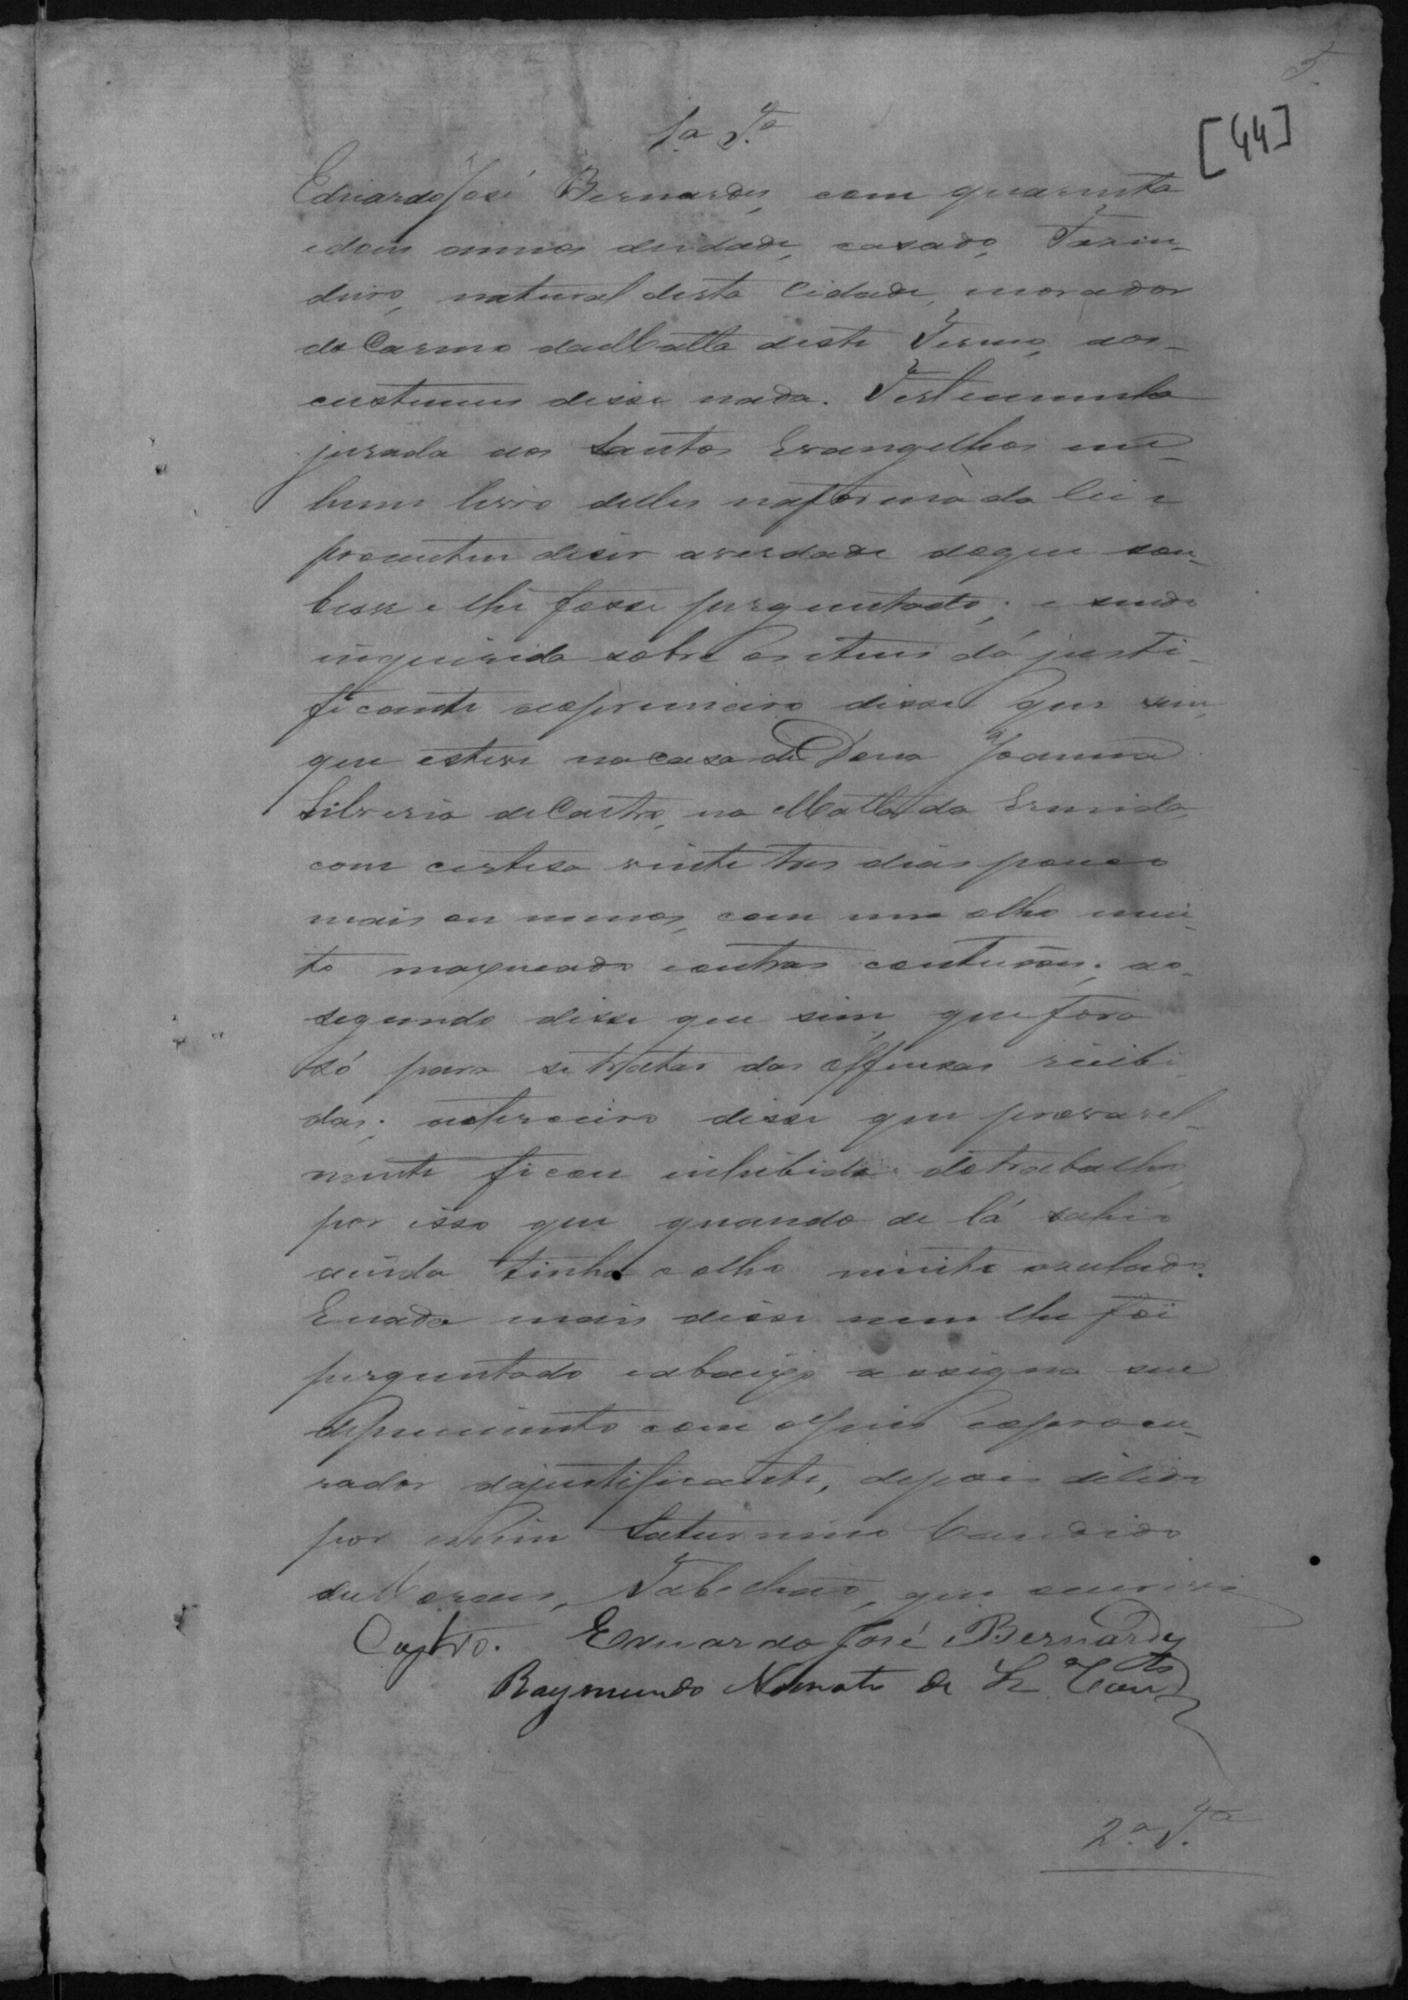 5
[44]
1.a T.a
Eduardo José Bernardes, com quarenta
e dois annos deidade, casado, Fazen-
deiro, natural desta Cidade, morador
do Carmo da Matta deste Termo, aos
custumes disse nada. Testemunha
jurada aos Santos Evangelhos em
hum livro delles na forma da lei e
prometeu diser averdade doque sou-
besse e lhe fosse perguntado; e sendo
inquirida sobre os itens da justi-
ficante ao primeiro disse que sim,
que esteve na casa de Dona Joanna
Silveria de Castro, na Matta da Ermida,
com certesa vinte tres dias pouco
mais ou menos, com um olho mui-
to maxucado e outras contusões; ao
segundo disse que sim que fora
só para se tratar das offensas recebi-
das; ao terceiro disse que provavel-
mente ficou inhibida de trabalho,
por isso que quando de lá sahio
ainda tinha o olho muito azulado.
E nada mais disse nem lhe foi
perguntado e abaixo assigna seu
depoimento com o Juis e o procu-
rador da justificante, depois de lido
por mim Saturnino Candido
de Moraes, Tabelião, que escrevi
Castro. Eduardo José Bernardes
Raymundo Nonato de
2.a T.a